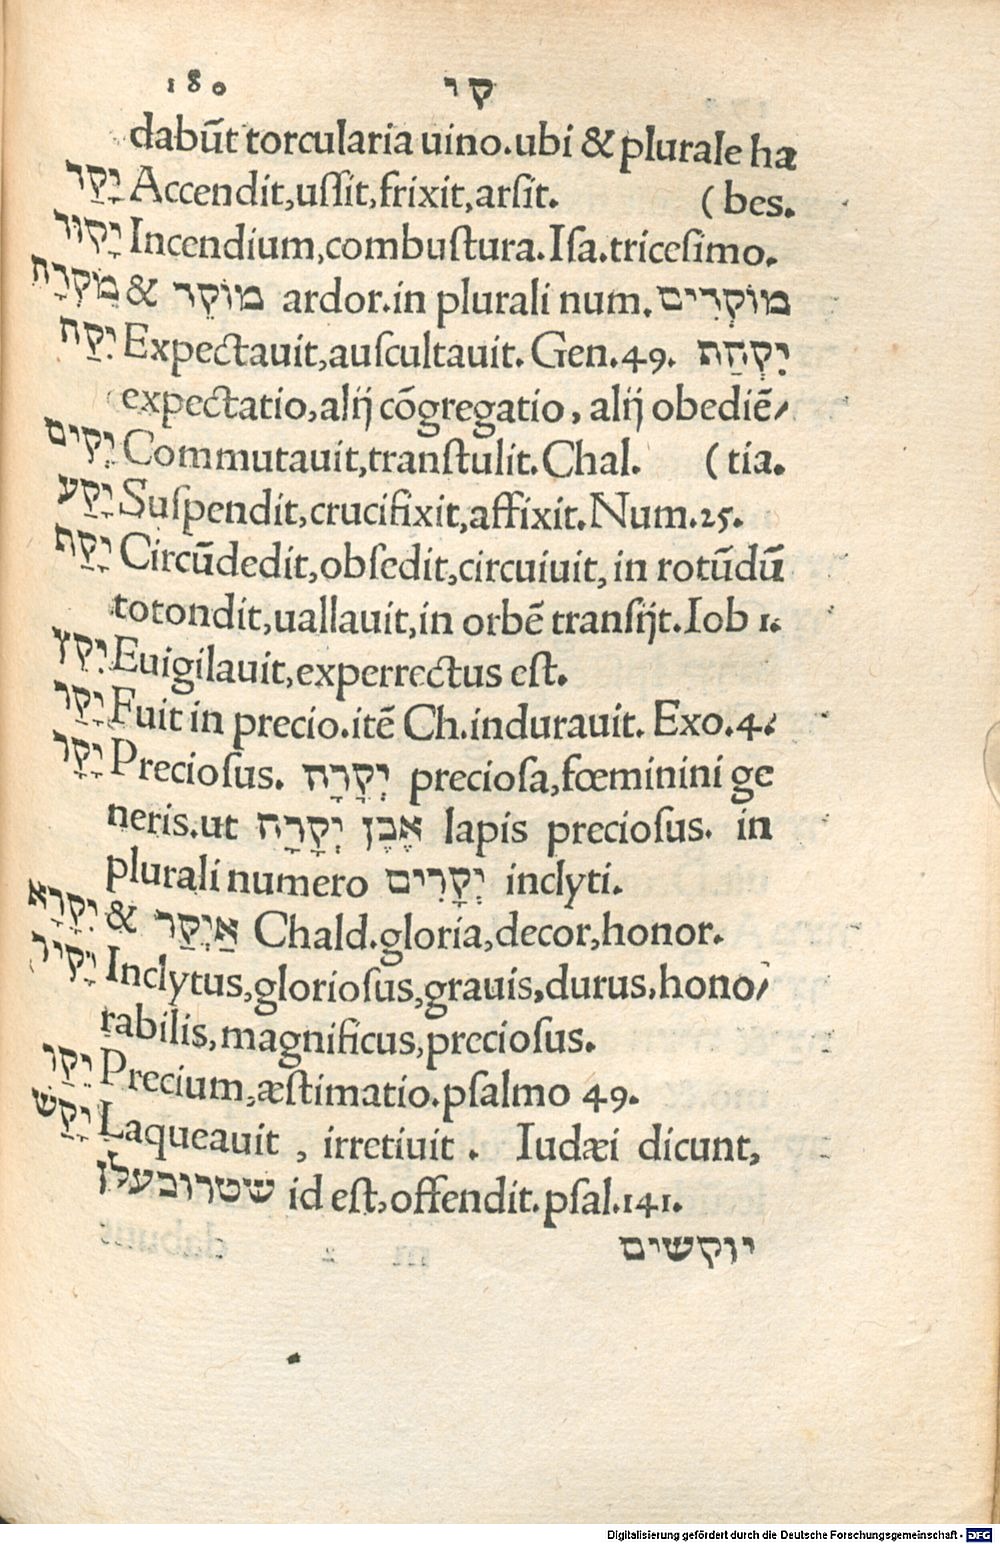 180 קו
dabūt torcularia uino.ubi & plurale ha
יָקַד Accendit,uſſit,frixit,arſit. (bes.
יָקוּד Incendium,combuſtura.Iſa.triceſimo.
מוֹקֵד & ardor.in plurali num. מוֹקְדִים
יִקַּח Expectauit,auſcultauit. Gen.49. יִקְּהַת
expectatio,alij cōgregatio, alij obediē/
יְקִים Commutauit,tranſtulit.Chal. (tia.
יָקַע Suſpendit,crucifixit,affixit.Num.25.
יָקַף Circūdedit,obſedit,circuiuit, in rotūdū
totondit,uallauit,in orbē tranſijt.Iob 1.
יִקֵץ Euigilauit,experrectus eſt.
יָקַר Fuit in precio.itē Ch.indurauit. Exo.4.
יָקָר Precioſus. יְקָרָה precioſa,fœminini ge
neris.ut אֶבֶן יְקָרָה lapis precioſus. in
plurali numero יְקָרִים inclyti.
יְקָרָא & אִיְקַר Chald.gloria,decor,honor.
יָקִיר Inclytus,glorioſus,grauis,durus,hono/
rabilis,magnificus,precioſus.
יֵקַר Precium,æſtimatio.pſalmo 49.
יָקַשׁ Laqueauit , irretiuit . Iudæi dicunt,
שטרובעלן id eſt,offendit.pſal.141.
יוקשים
Digitalisierung gefördert durch die Deutsche Forschungsgemeinschaft - DFG